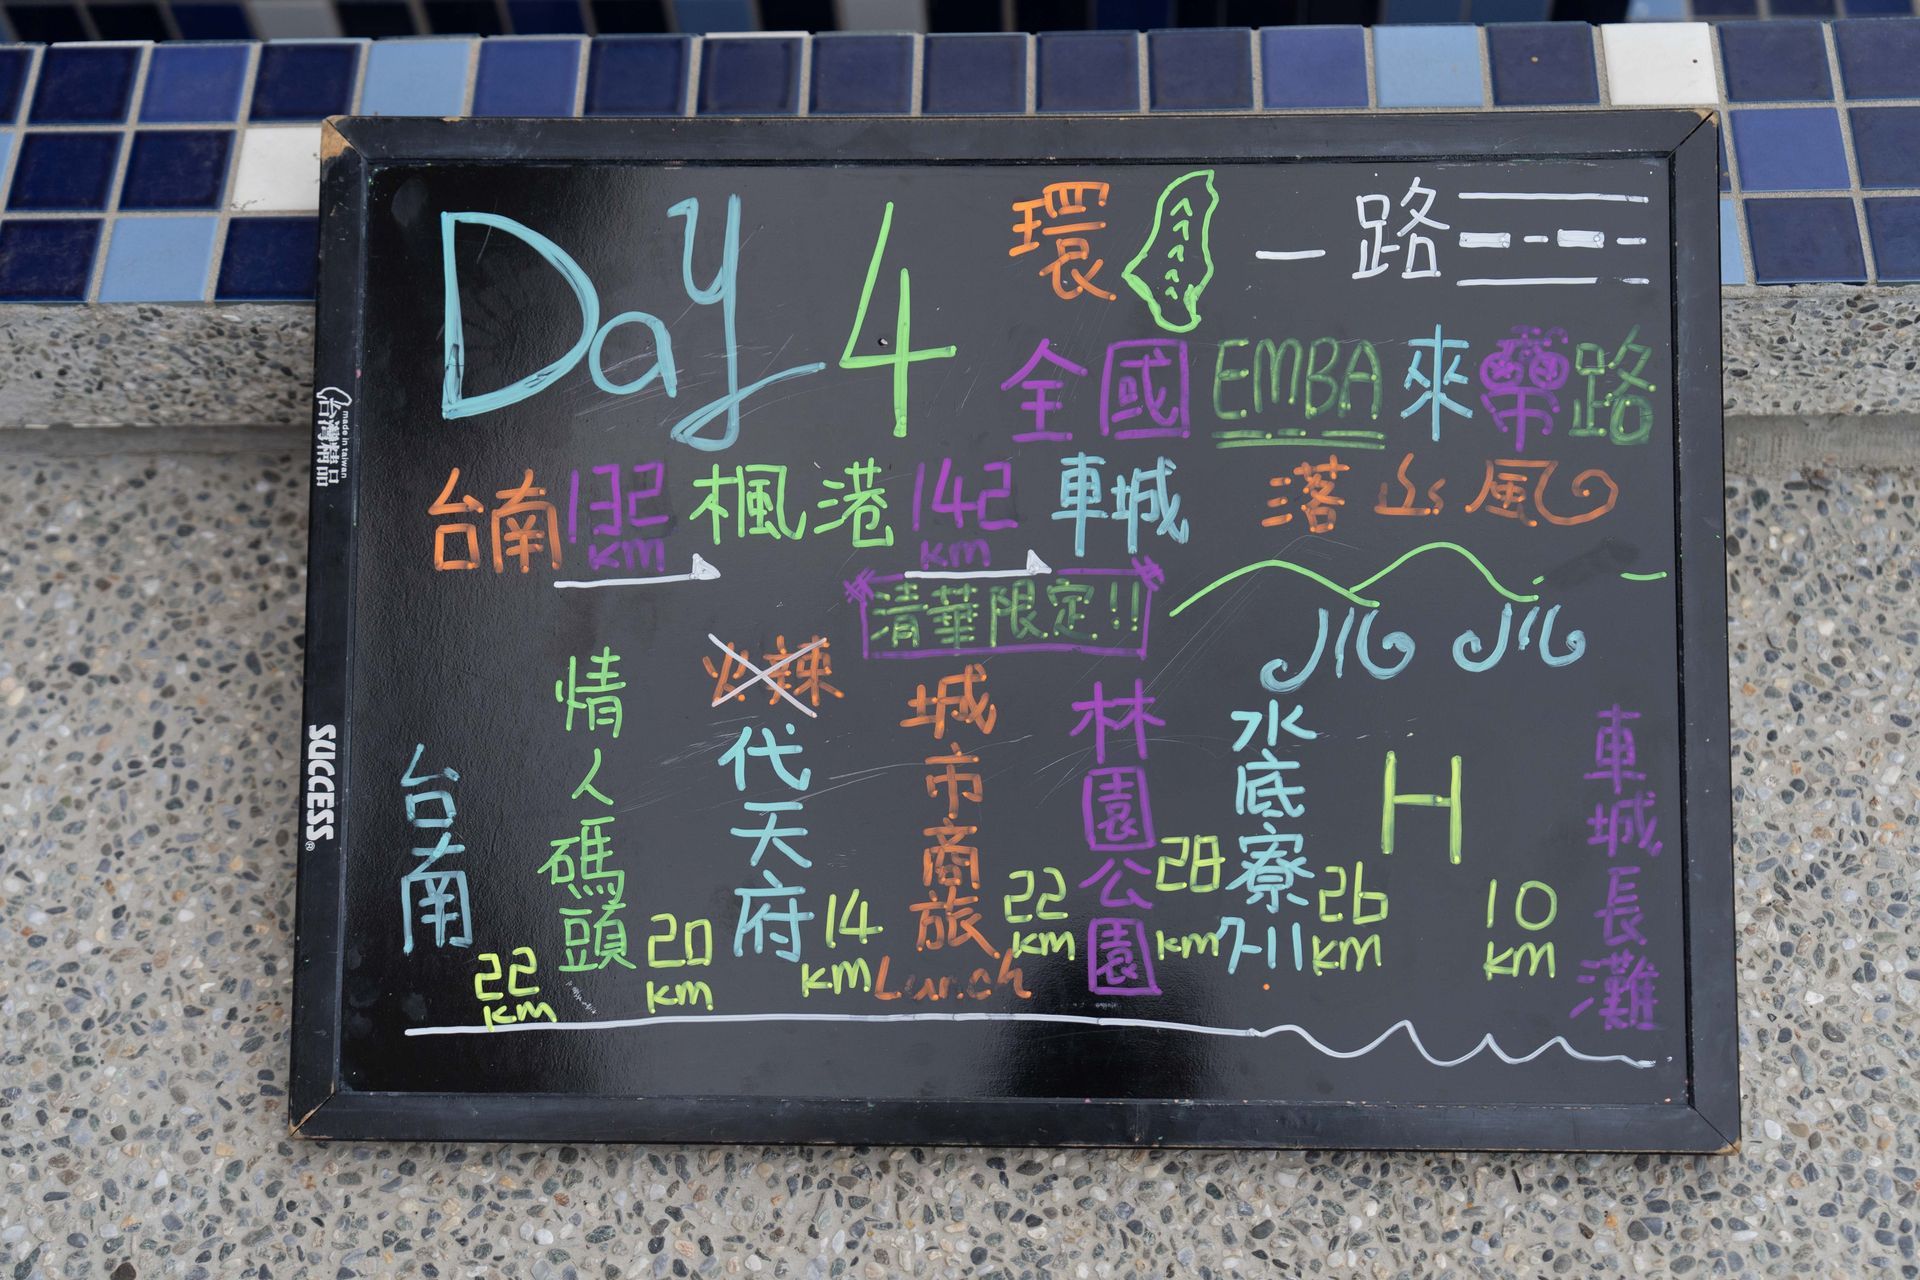 Day 4
環 一路
全國 EMBA 來帶路
台南 132 km 楓港 142 km 車城
落山風
清華限定!!
台南
22 km
情人碼頭
20 km
火辣
代天府
14 km
城市商旅
Lunch
22 km
林園公園
28 km
水底寮
26 km
H
10 km
車城長灘
made in taiwan
台灣精品
SUCCESS®